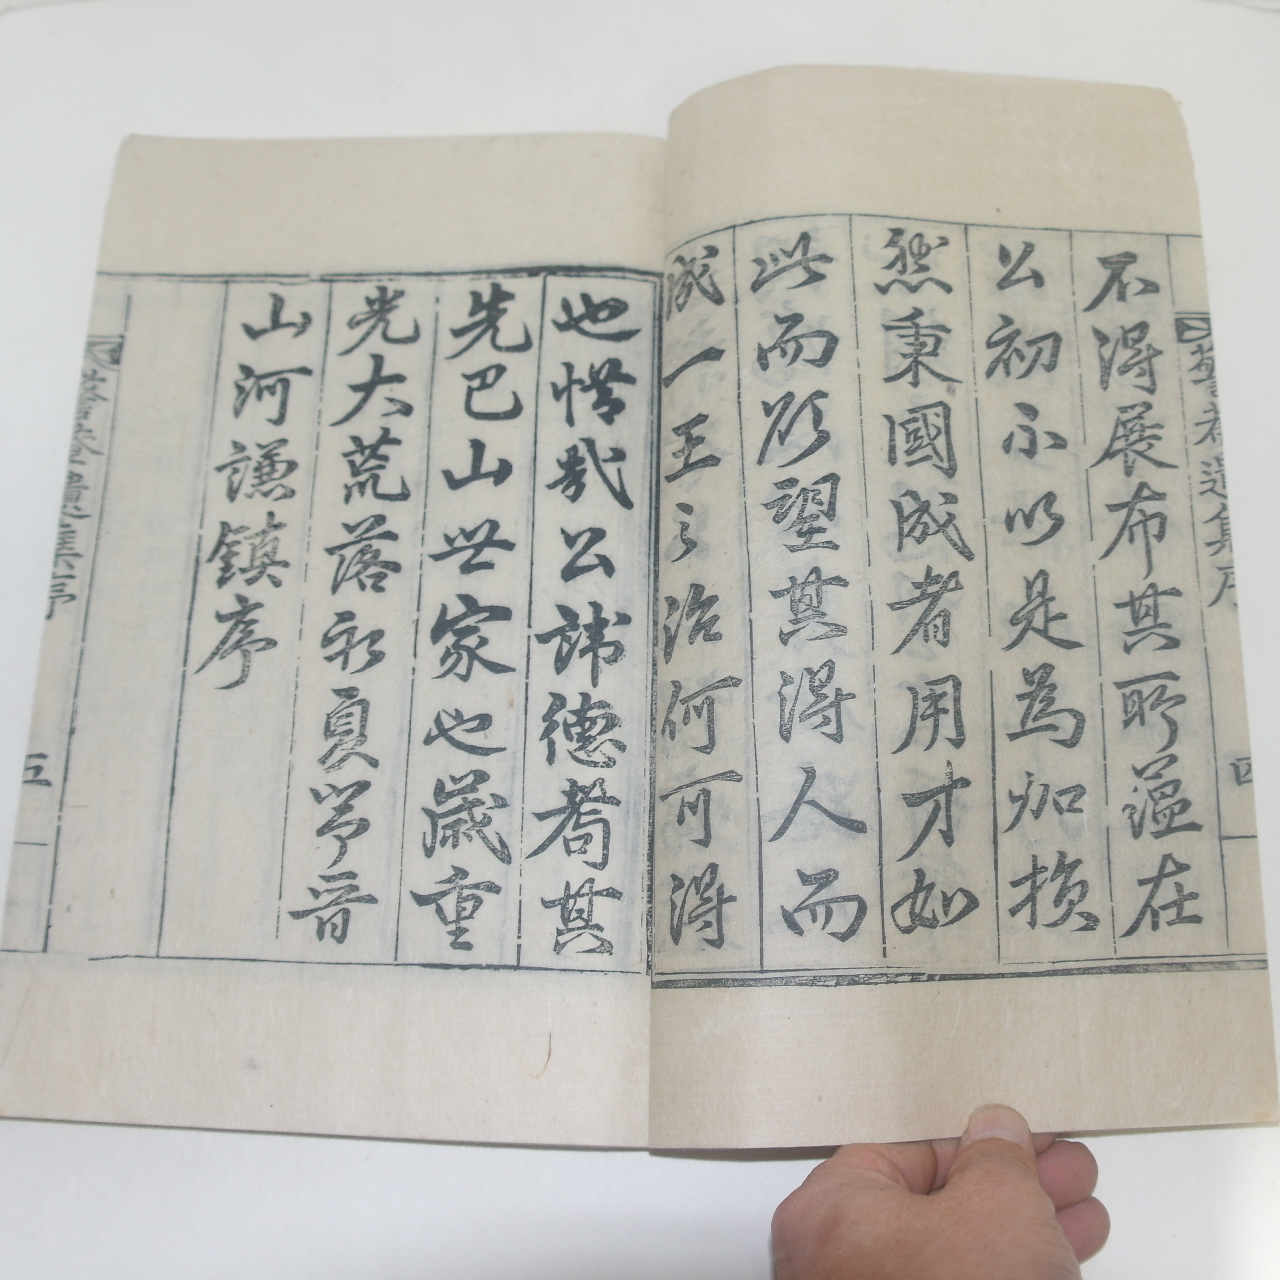 遺集序
四
不得展布其所蘊在
公初不以是為加損
然秉國成者用才如
此而欲望其得人而
成一王之治何可得
也惜哉公諱德耈其
先巴山世家也歲重
光大荒落永夏嘐音
山河謙鎮序
遺集序
五